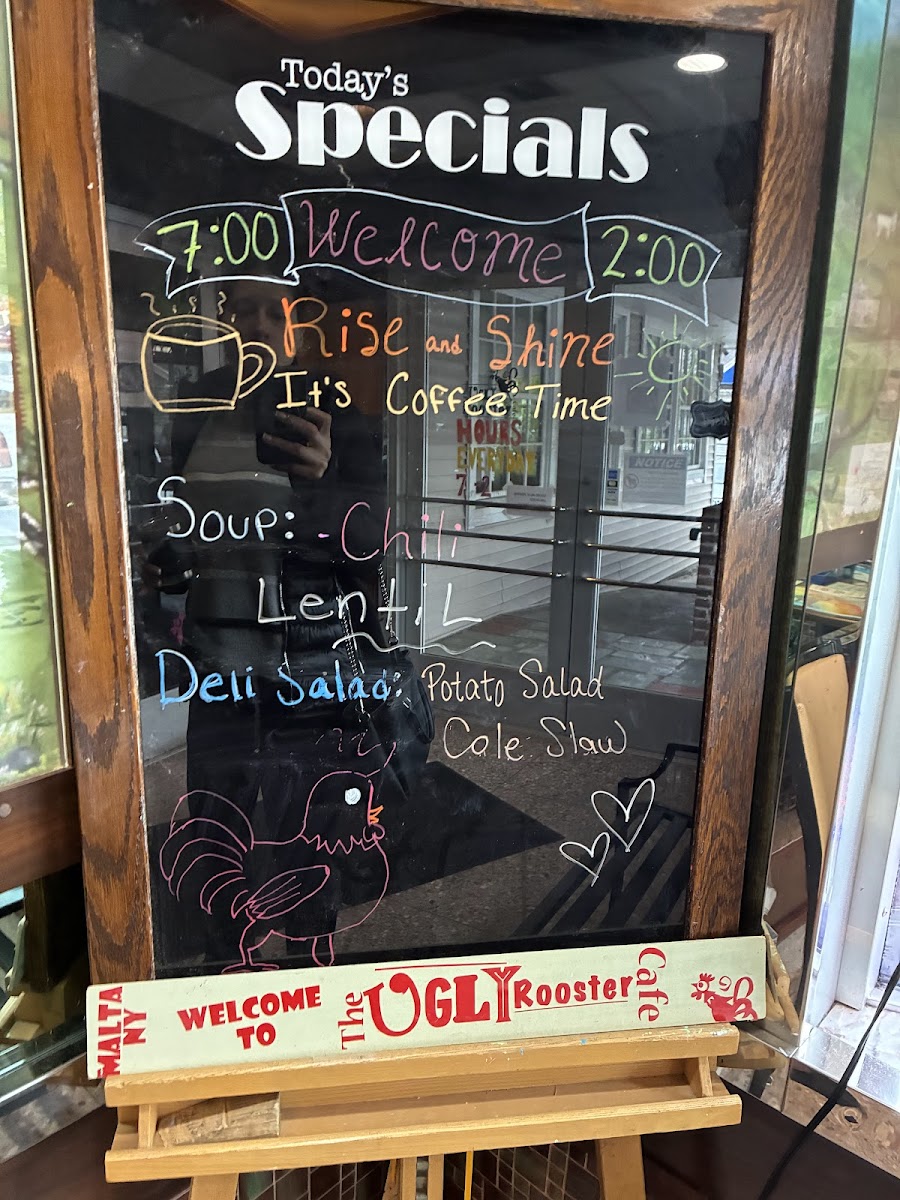 Today's
Specials
7:00 Welcome 2:00
Rise and Shine
It's Coffee Time
HOURS
EVERYDAY
7-2
NOTICE
Soup: - Chili
Lentil
Deli Salad: Potato Salad
Cole Slaw
MALTA
NY
WELCOME
TO
The UGLY Rooster Cafe